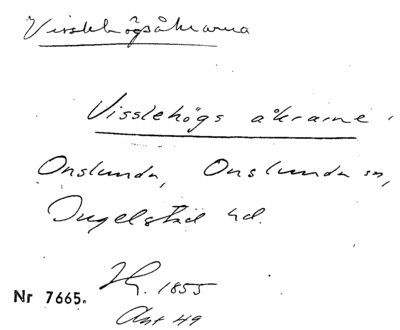 Visslehögsåkrarna
Visslehögs åkrarne
Onslunda, Onslunda sn,
Ingelstad hd.
Nr 7665.
1855
Akt 49